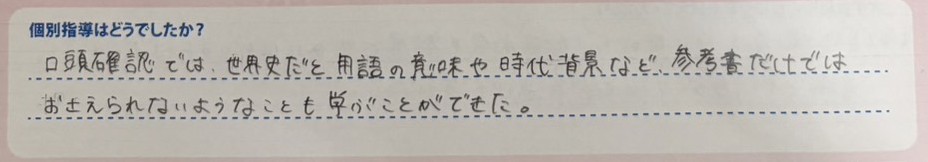 個別指導はどうでしたか?
口頭確認では、世界史だと用語の意味や時代背景など、参考書だけでは
おさえられないようなことも学ぶことができた。